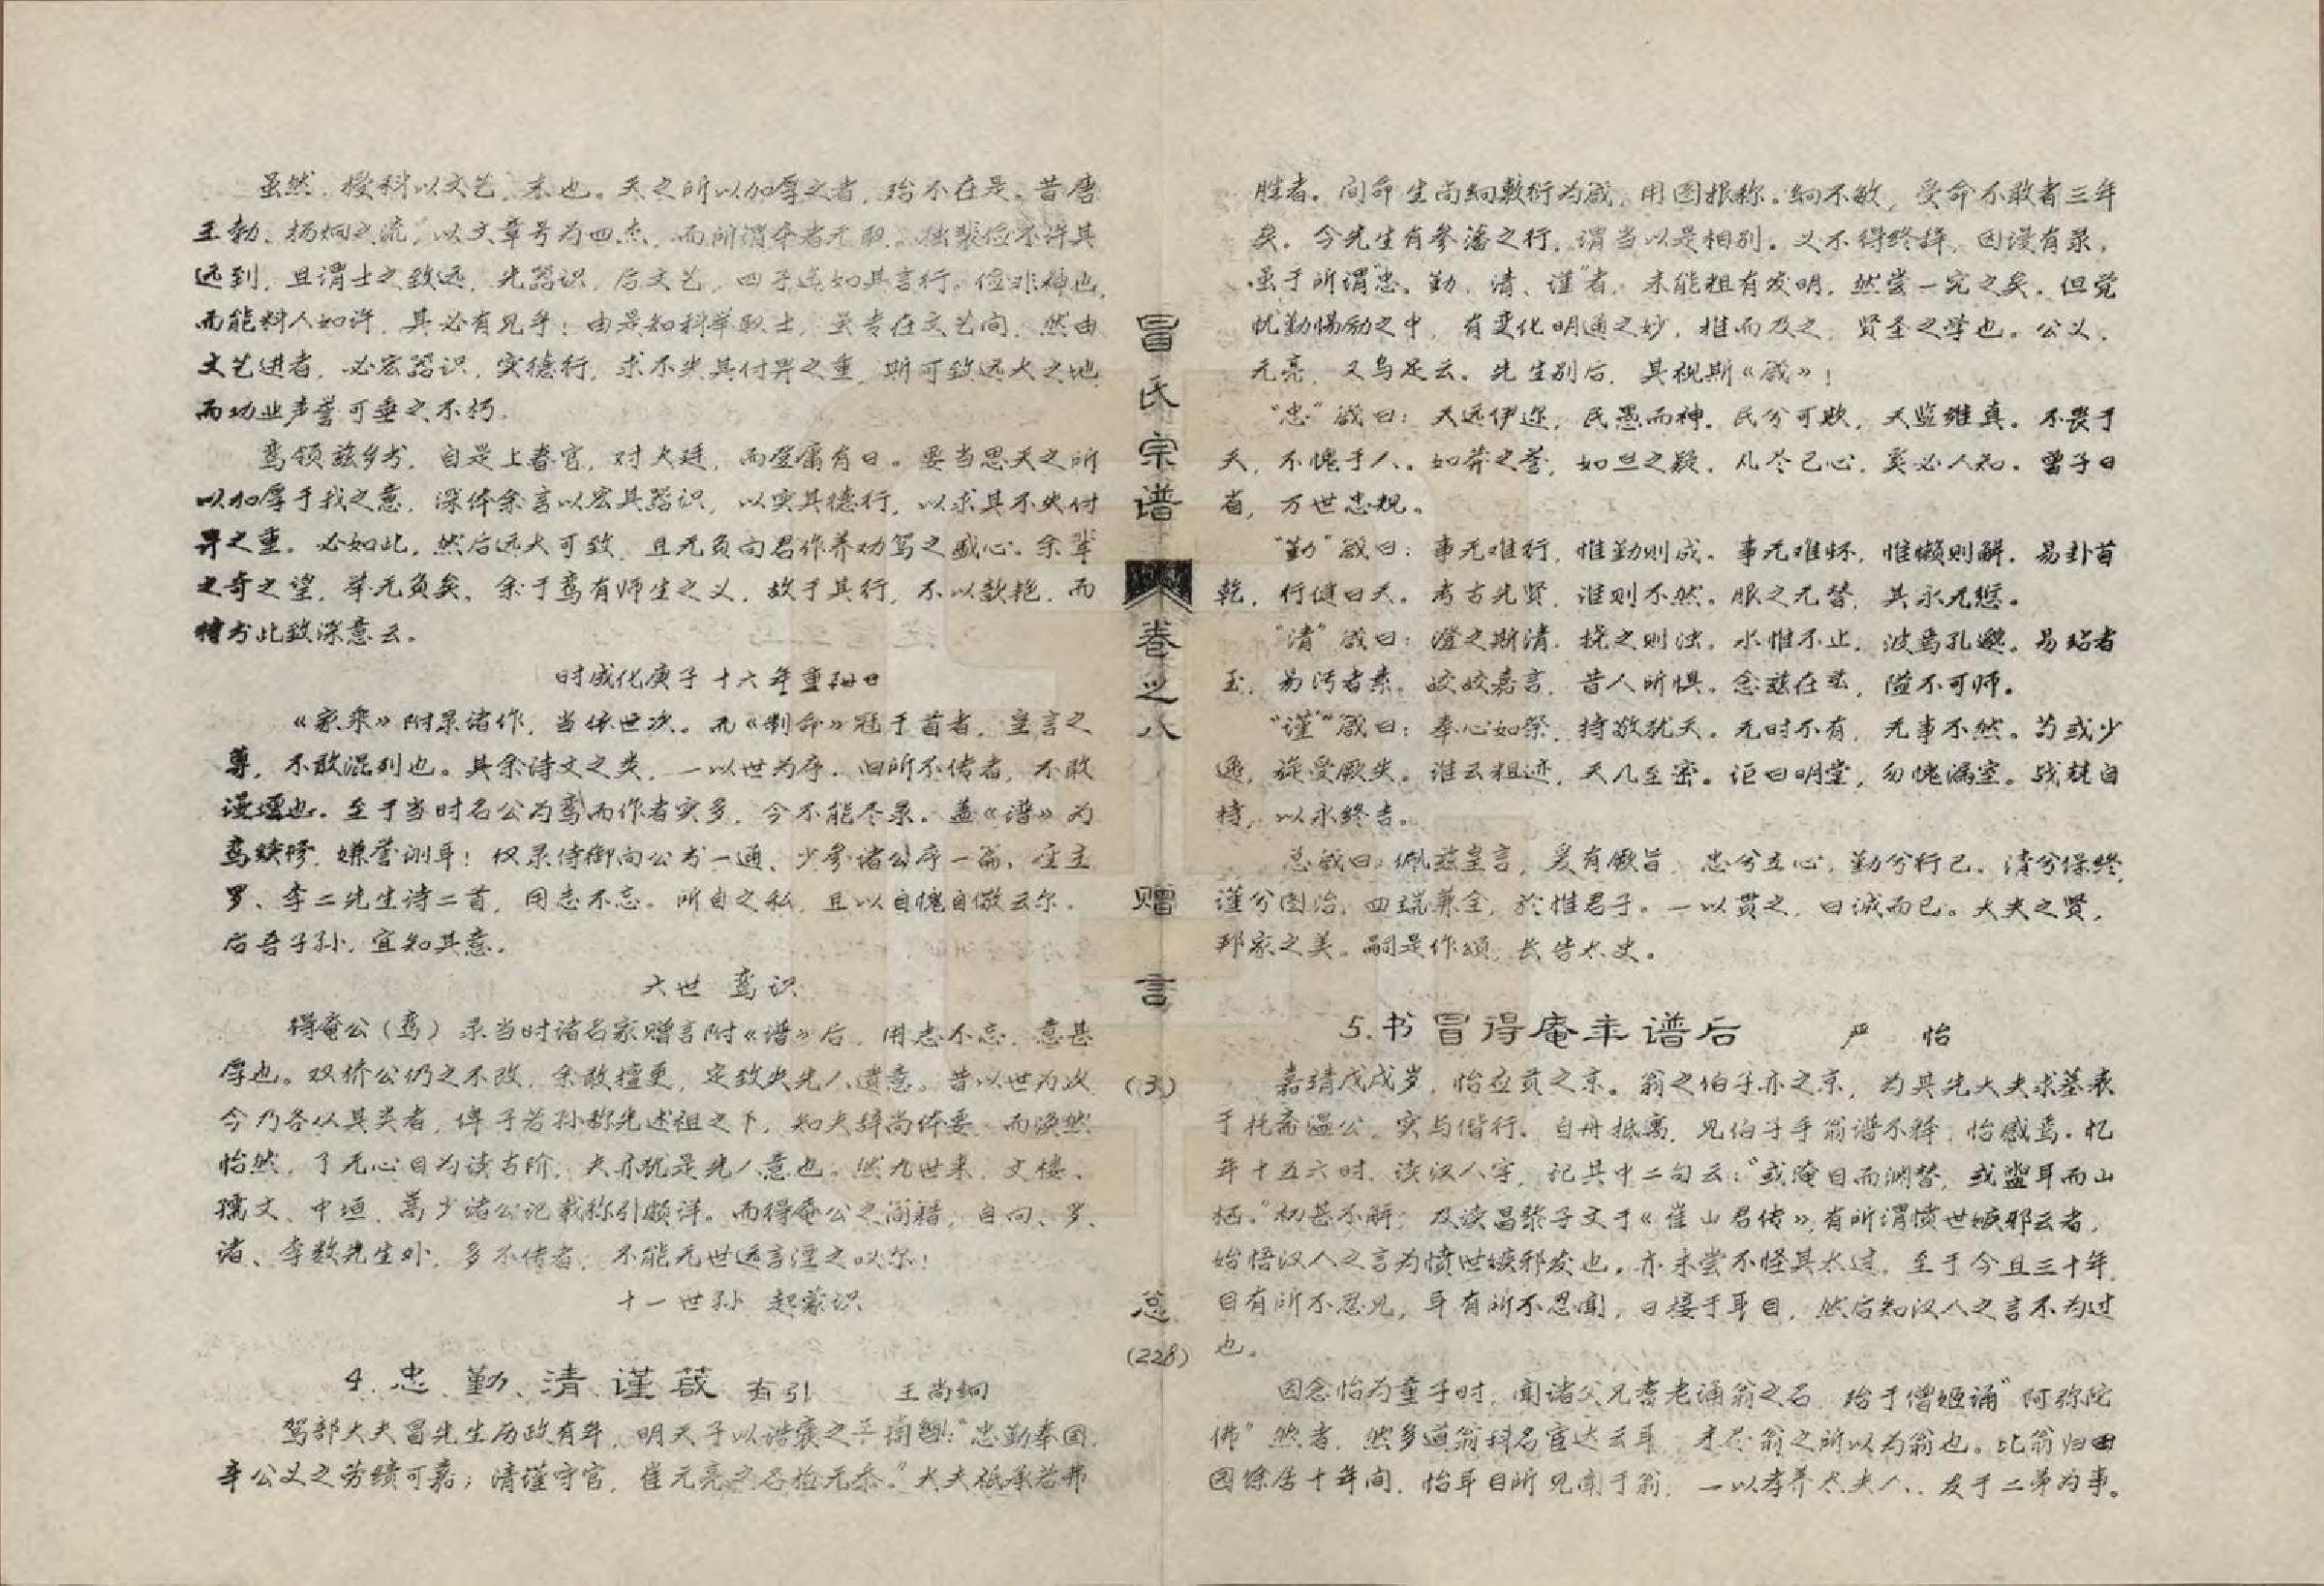 虽然，擢科以文艺，末也。天之所以加厚之者，殆不在是。昔唐
王勃、杨炯之流，以文章号为四杰，而所谓夺者无取。独裴俭不许其
远到，且谓士之致远，先器识，后文艺，四子迄如其言行。俭非神也，
而能料人如许，其必有见乎！由是知科举取士，虽专在文艺间，然由
文艺进者，必宏器识，实德行，求不失其付畀之重，斯可致远大之地，
而功业声誉可垂之不朽。
鸾领兹乡书，自是上春官，对大廷，而登庸有日。要当思天之所
以加厚于我之意，深体余言以宏其器识，以实其德行，以求其不失付
畀之重。必如此，然后远大可致，且无负向君作养劝驾之盛心。余辈
之奇之望，举无负矣。余于鸾有师生之义，故于其行，不以歆艳，而
特书此致深意云。
时成化庚子十六年重阳日
《家乘》附录诸作，当依世次。而《制命》冠于首者，皇言之
尊，不敢混列也。其余诗文之类，一以世为序。旧所不传者，不敢
漫增也。至于当时名公为鸾而作者实多，今不能尽录。盖《谱》为
鸾续修，嫌誉训耳！仅录侍御向公书一通、少参诸公序一篇、座主
罗、李二先生诗二首，用志不忘。所自之私，且以自愧自儆云尔。
后吾子孙，宜知其意。
六世 鸾识
得庵公（鸾）录当时诸名家赠言附《谱》后，用志不忘，意甚
厚也。双桥公仍之不改，余敢擅更，定致失先人遗意。昔以世为次，
今乃各以其类者，俾子若孙称先述祖之下，知夫辞尚体要，而涣然
怡然，了无心目为读书阶，夫亦犹是先人意也。然九世来，文楼、
孺文、中垣、嵩少诸公记载称引颇详。而得庵公之简籍，自向、罗、
诸、李数先生外，多不传者，不能无世远言湮之叹尔！
十一世孙 起蒙识
4.忠、勤、清、谨箴 有引 王尚絅
驾部大夫冒先生历政有年，明天子以诰褒之，若曰：“忠勤奉国，
辛公义之劳绩可嘉；清谨守官，崔元亮之名检无忝。”大夫祗承若弗
冒氏宗谱
卷之八
赠言
（3）
总
（228）
胜者。间命生尚絅敷衍为箴，用图报称。絅不敏，受命不敢者三年
矣。今先生有参藩之行，谓当以是相别。义不得终辞，因漫有录。
虽于所谓“忠、勤、清、谨”者，未能粗有发明，然尝一究之矣。但觉
忧勤惕励之中，有变化明通之妙，推而及之，贤圣之学也。公义、
元亮，又乌足云。先生别后，其视斯《箴》！
“忠”箴曰：天远伊迩，民愚而神。民兮可欺，天监维真。不畏于
天，不愧于人。如莽之誉，如旦之疑。凡尽己心，奚必人知。曾子日
省，万世忠规。
“勤”箴曰：事无难行，惟勤则成。事无难怀，惟懒则解。易卦首
乾，行健曰天。考古先贤，谁则不然。服之无替，其永无愆。
“清”箴曰：澄之斯清，挠之则浊。水惟不止，波焉孔邈。易玷者
玉，易污者素。皎皎嘉言，昔人所惧。念兹在兹，隘不可师。
“谨”箴曰：奉心如祭，持敬犹天。无时不有，无事不然。苟或少
逸，旋受厥失。谁云粗迹，天几至密。讵曰明堂，勿愧漏室。战兢自
持，以永终吉。
总箴曰：佩兹皇言，爰有厥旨。忠兮立心，勤兮行己。清兮保终，
谨兮图治。四端兼全，於惟君子。一以贯之，曰诚而已。大夫之贤，
邦家之美。嗣是作颂，长告太史。
5.书冒得庵年谱后 严 怡
嘉靖戊戌岁，怡应贡之京。翁之伯子亦之京，为其先大夫求墓表
于托斋温公，实与偕行。自舟抵寓，见伯子手翁谱不释，怡感焉。忆
年十五六时，读汉人字，记其中二句云：“或瞑目而渊替，或盥耳而山
栖。”初甚不解；及读昌黎子文于《崔山君传》，有所谓愤世嫉邪云者，
始悟汉人之言为愤世嫉邪发也。亦未尝不怪其太过。至于今且三十年，
目有所不忍见，耳有所不忍闻，日接于耳目，然后知汉人之言不为过
也。
因念怡为童子时，闻诸父兄耆老诵翁之名，殆于僧姬诵“阿弥陀
佛”然者，然多道翁科名官达云耳，未尽翁之所以为翁也。比翁归田
园馀居十年间，怡耳目所见闻于翁，一以孝养太夫人、友于二弟为事。